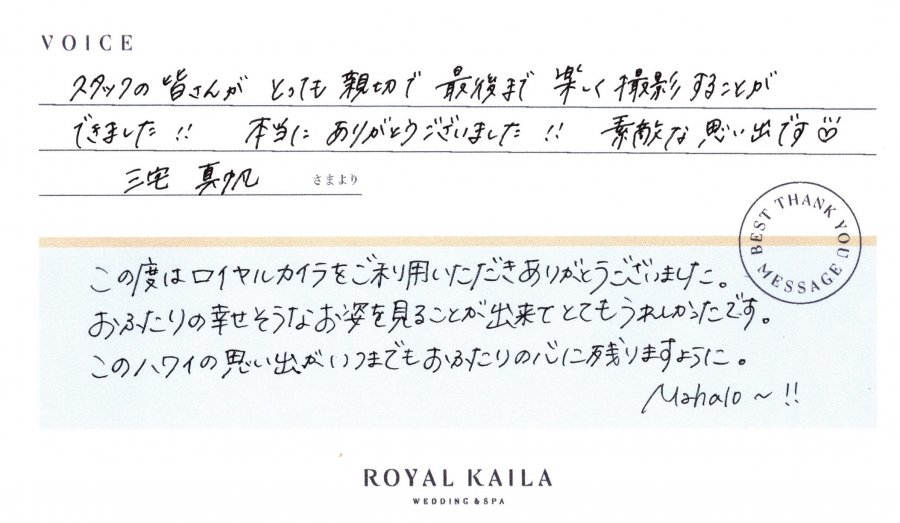 VOICE
スタッフの皆さんが とっても 親切で 最後まで 楽しく 撮影することが
できました!! 本当に ありがとうございました!! 素敵な思い出です♡
三宅 真帆 さまより
BEST THANK YOU MESSAGE
この度はロイヤルカイラをご利用いただきありがとうございました。
おふたりの幸せそうなお姿を見ることが出来てとてもうれしかったです。
このハワイの思い出がいつまでもおふたりの心に残りますように。
Mahalo~!!
ROYAL KAILA
WEDDING & SPA